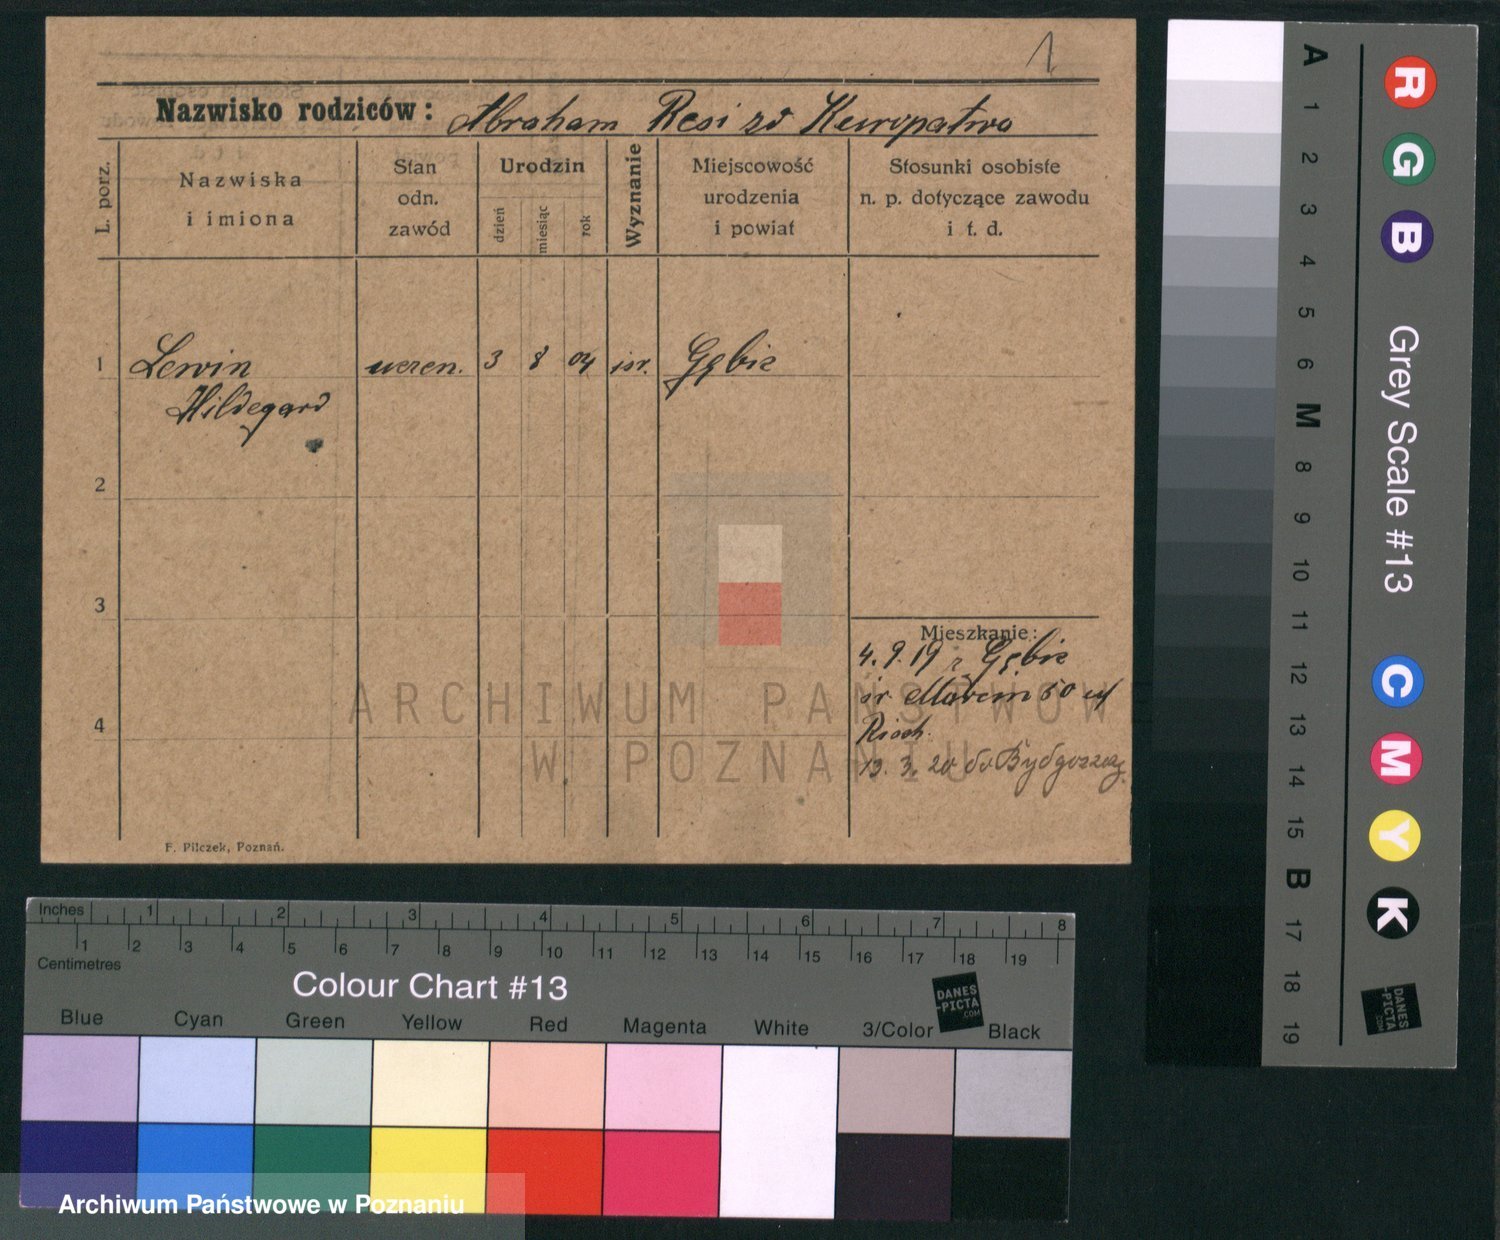 1
Nazwisko rodziców: Abraham Resi zd Kuropatwa
L. porz.
Nazwiska
i imiona
Stan
odn.
zawód
Urodzin
dzień
miesiąc
rok
Wyznanie
Miejscowość
urodzenia
i powiat
Stosunki osobiste
n. p. dotyczące zawodu
i t. d.
1 Lewin uczen. 3 8 04 isr. Gębic
Hildegard
2
3
4
Mieszkanie:
4.9.19 z Gębic
św. Marcin 50
13. 3. 20 do Bydgoszczy
F. Pilczek, Poznań.
ARCHIWUM PAŃSTWOW
W POZNANIU
A 1 2 3 4 5 6 M 8 9 10 11 12 13 14 15 B 17 18 19
R G B
Grey Scale #13
C M Y K
DANES
-PICTA
.COM
Inches 1 2 3 4 5 6 7 8
1 2 3 4 5 6 7 8 9 10 11 12 13 14 15 16 17 18 19
Centimetres
Colour Chart #13
DANES
-PICTA
.COM
Blue Cyan Green Yellow Red Magenta White 3/Color Black
Archiwum Państwowe w Poznaniu